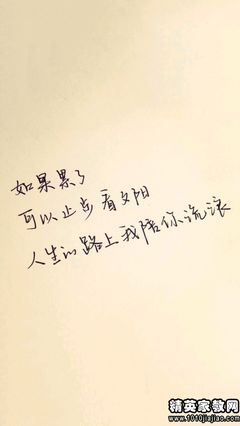 如果累了
可以止步看夕阳
人生的路上我陪你流浪
精英家教网
www.1010jiajiao.com